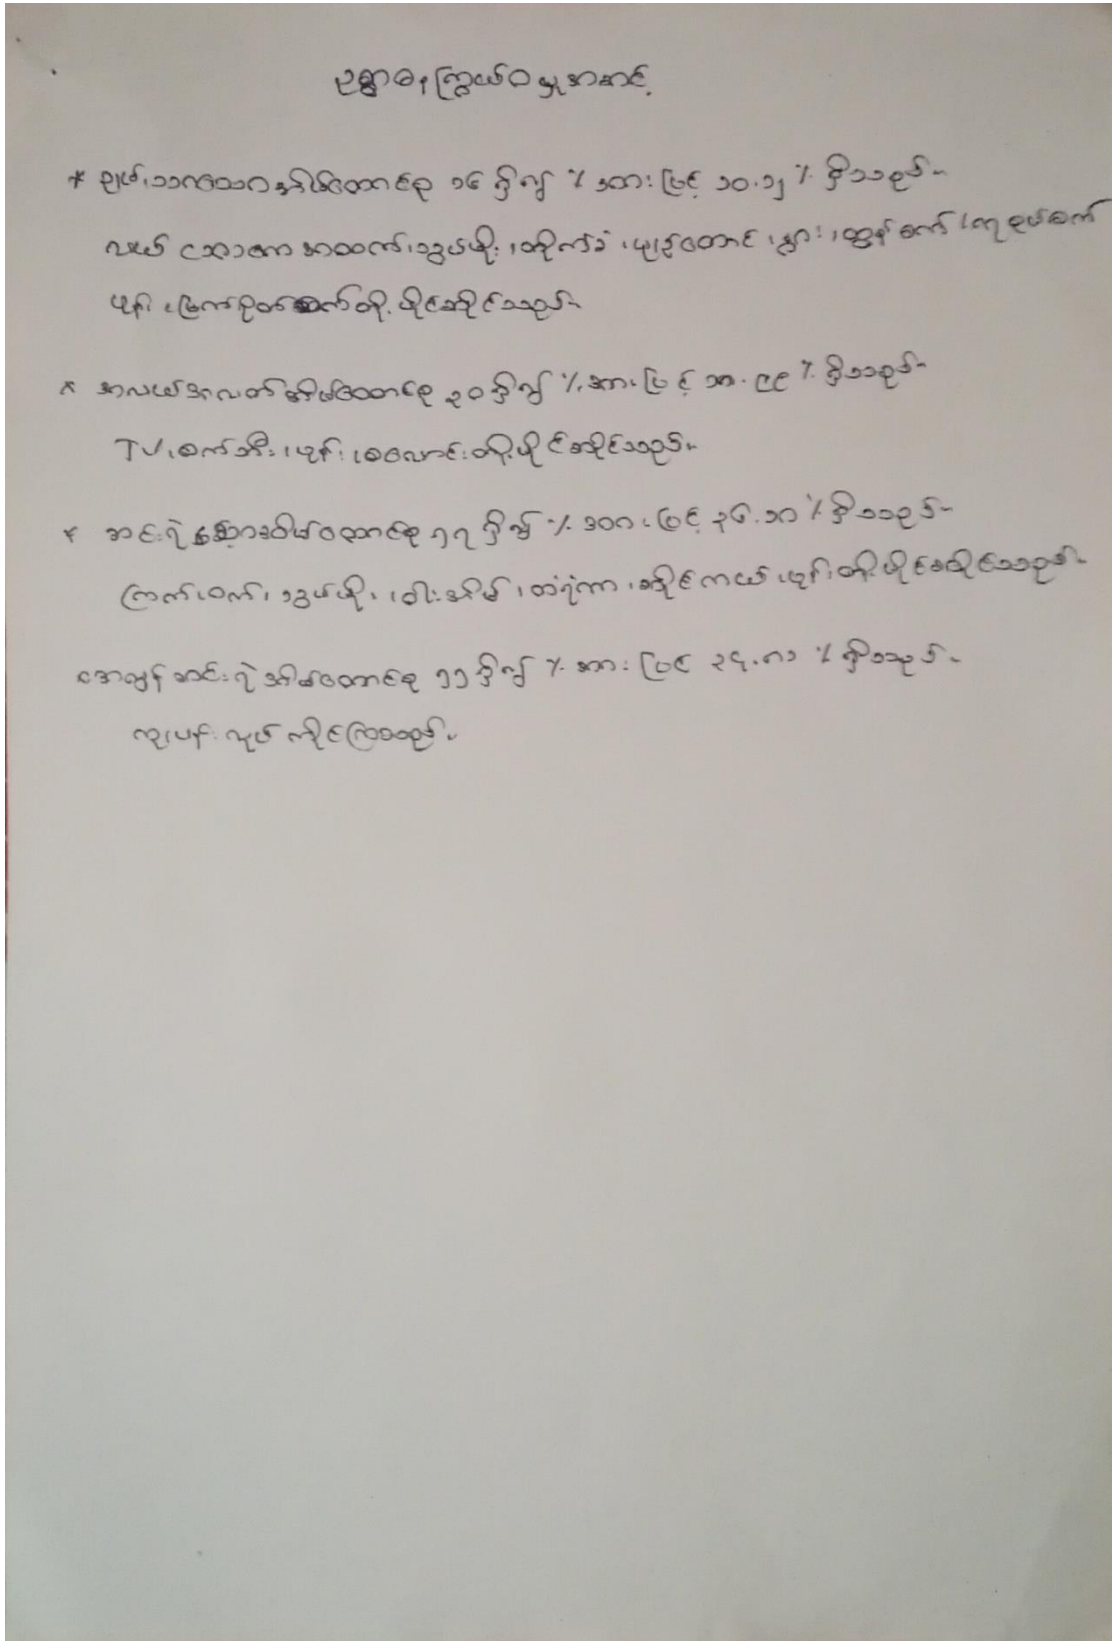 ဥစ္စာဓနကြွယ်ဝမှုအဆင့်
* ချမ်းသာသောအိမ်ထောင်စု ၁၆ ရှိလျှင် % အားဖြင့် ၁၀.၁၂ % ရှိသည်။
လယ် ၎ အထက်၊ ဒွယ်ဖိုး၊ တိုက်ခံ၊ ပျဉ်ထောင်၊ နွား၊ ထွန်စက်၊
ဖုန်း၊ မြက်ခုတ်စက်တို့ ပိုင်ဆိုင်သည်။
* အလယ်အလတ်အိမ်ထောင်စု ၃၀ ရှိလျှင် % အားဖြင့် ၁၈.၉၉ % ရှိသည်။
TV၊ စက်ဘီး၊ ဖုန်း၊ စလောင်းတို့ ပိုင်ဆိုင်သည်။
* ဆင်းရဲသောအိမ်ထောင်စု ၅၇ ရှိလျှင် % အားဖြင့် ၃၆.၁၈ % ရှိသည်။
ကြက်၊ ဝက်၊ ဒွယ်ဖိုး၊ ဝါးအိမ်၊ တံရံကာ၊ ဆိုင်ကယ်၊ ဖုန်းတို့ ပိုင်ဆိုင်သည်။
အလွန်ဆင်းရဲအိမ်ထောင်စု ၅၅ ရှိလျှင် % အားဖြင့် ၃၄.၈၁ % ရှိသည်။
ကျပန်းလုပ်ကိုင်ကြသည်။